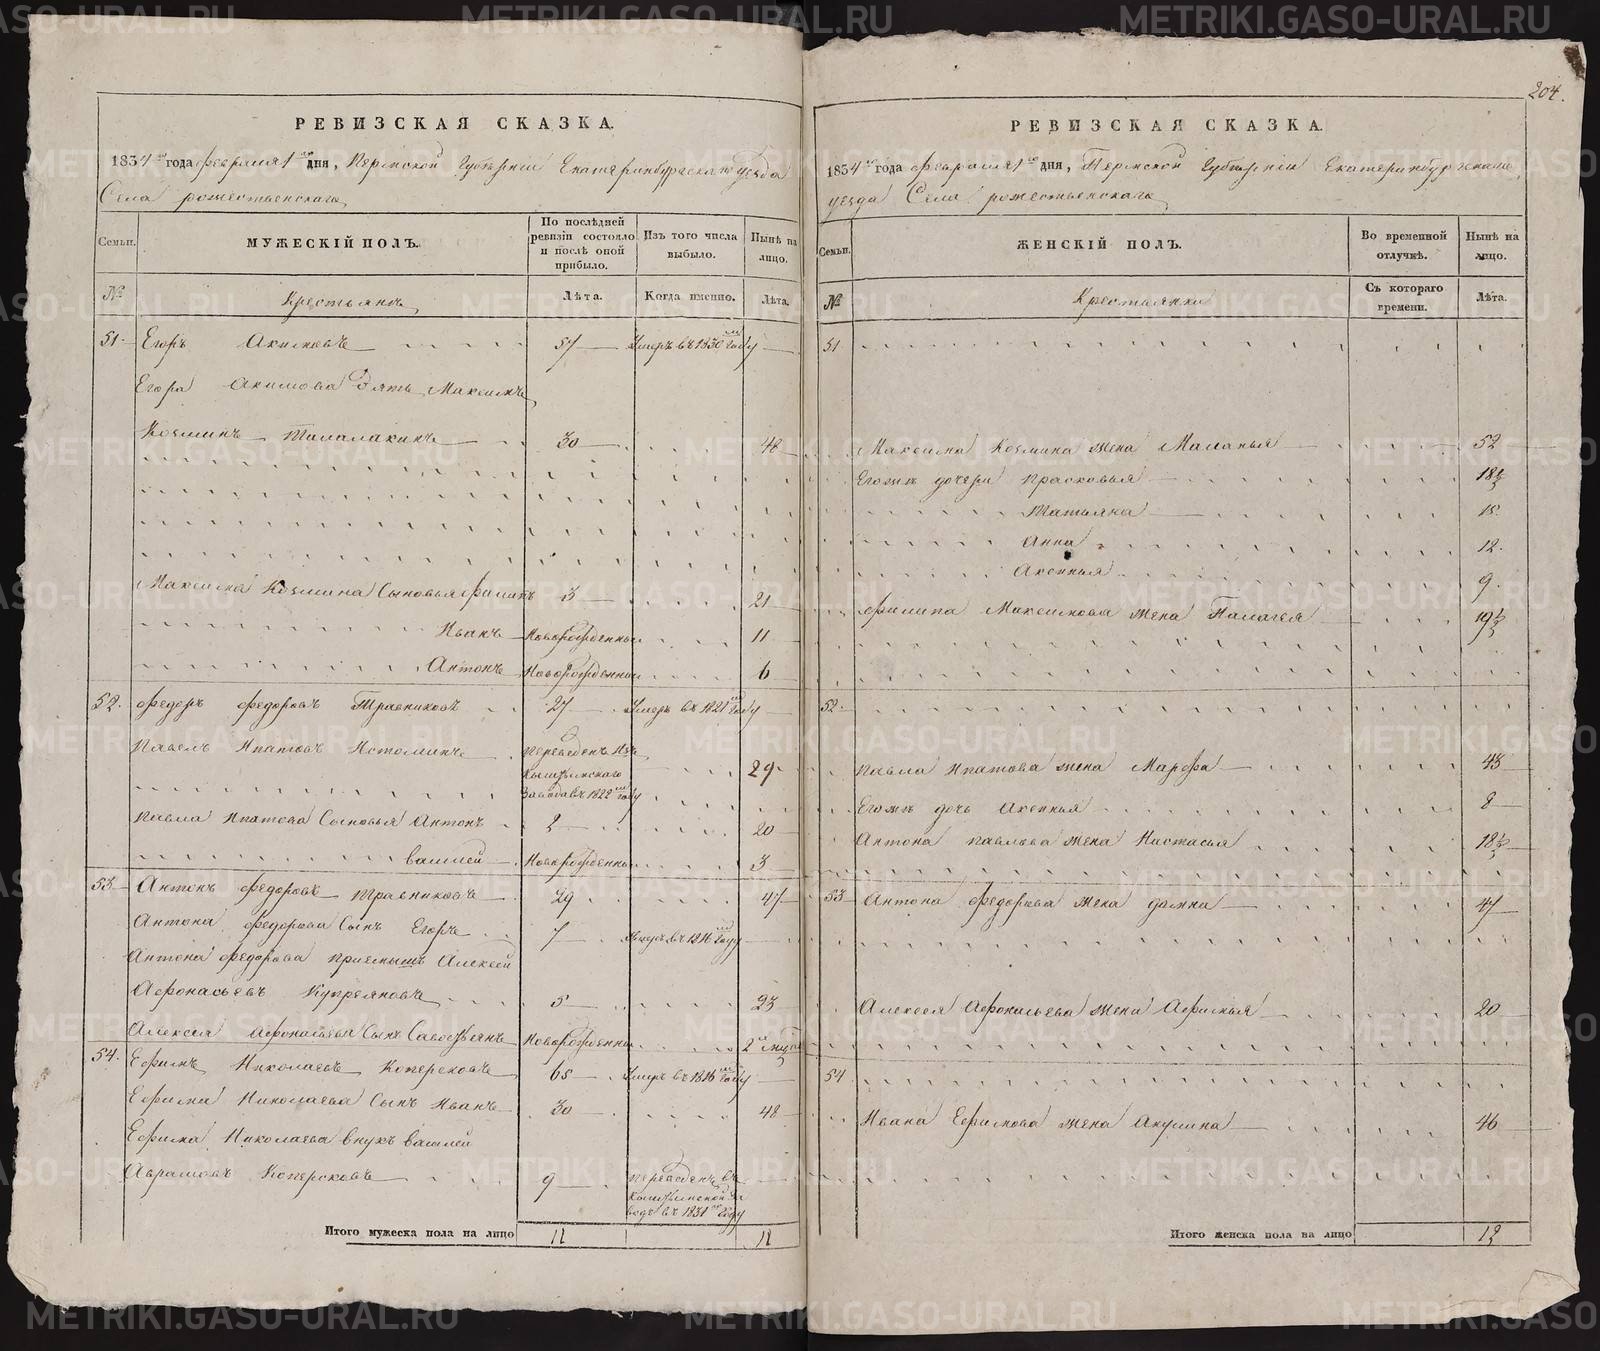 204.
РЕВИЗСКАЯ СКАЗКА.
1834го года февраля 1го дня, Пермской Губернiи Екатеринбургскаго уезда
Села рожественскаго
Семьи. МУЖЕСКIЙ ПОЛЪ. По послѣдней ревизiи состояло и послѣ оной прибыло. Изъ того числа выбыло. Нынѣ на лицо.
№ Крестьянъ Лѣта. Когда именно. Лѣта.
51. Егоръ Акимовъ 57 Умеръ въ 1830м году
Егора Акимова Зять Максимъ
Козминъ Талалакинъ 30 48
Максима Козмина Сыновья филипъ 3 21
Иванъ Новорожденный 11
Антонъ Новорожденной 6
52. федоръ федоровъ Травниковъ 27 Умеръ въ 1821м году
Павелъ Ипатовъ Истоминъ переведенъ изъ Кыштымскаго Завода въ 1822м году 29
Павла Ипатова Сыновья Антонъ 2 20
василей Новорожденный 3
53. Антонъ федоровъ Травниковъ 29 47
Антона федорова Сынъ Егоръ 7 Умеръ въ 1816м году
Антона федорова приемышъ Алексей
Афонасьевъ Купреяновъ 5 23
Алексея Афонасьева Сынъ Новорожденный 2
54. Ефимъ Николаевъ Коперсковъ 65 Умеръ въ 1816м году
Ефима Николаева Сынъ Иванъ 30 48
Ефима Николаева внукъ василей
Аврамовъ Коперсковъ 9 переведенъ въ Кыштымской за вод въ 1831м году
Итого мужеска пола на лицо 11 11
РЕВИЗСКАЯ СКАЗКА.
1834го года февраля 1го дня, Пермской Губернiи Екатеринбургскаго
уезда Села рожественскаго
Семьи. ЖЕНСКIЙ ПОЛЪ. Во временной отлучкѣ. Нынѣ на лицо.
№ Крестьянки Съ котораго времени. Лѣта.
51
Максима Козмина жена Маланья 52
Егожъ дочери Прасковья 18½
Татьяна 15.
Анна 12.
Аксинья 9.
филипа Максимова жена Палагея 19½
52.
Павла Ипатова жена Марфа 43
Егожъ дочь Аксинья 8
Антона павлова жена Настасья 18½
53 Антона федорова жена домна 47
Алексея Афонасьева жена Афимья 20
54
Ивана Ефимова жена Акулина 46
Итого женска пола на лицо 12
METRIKI.GASO-URAL.RU